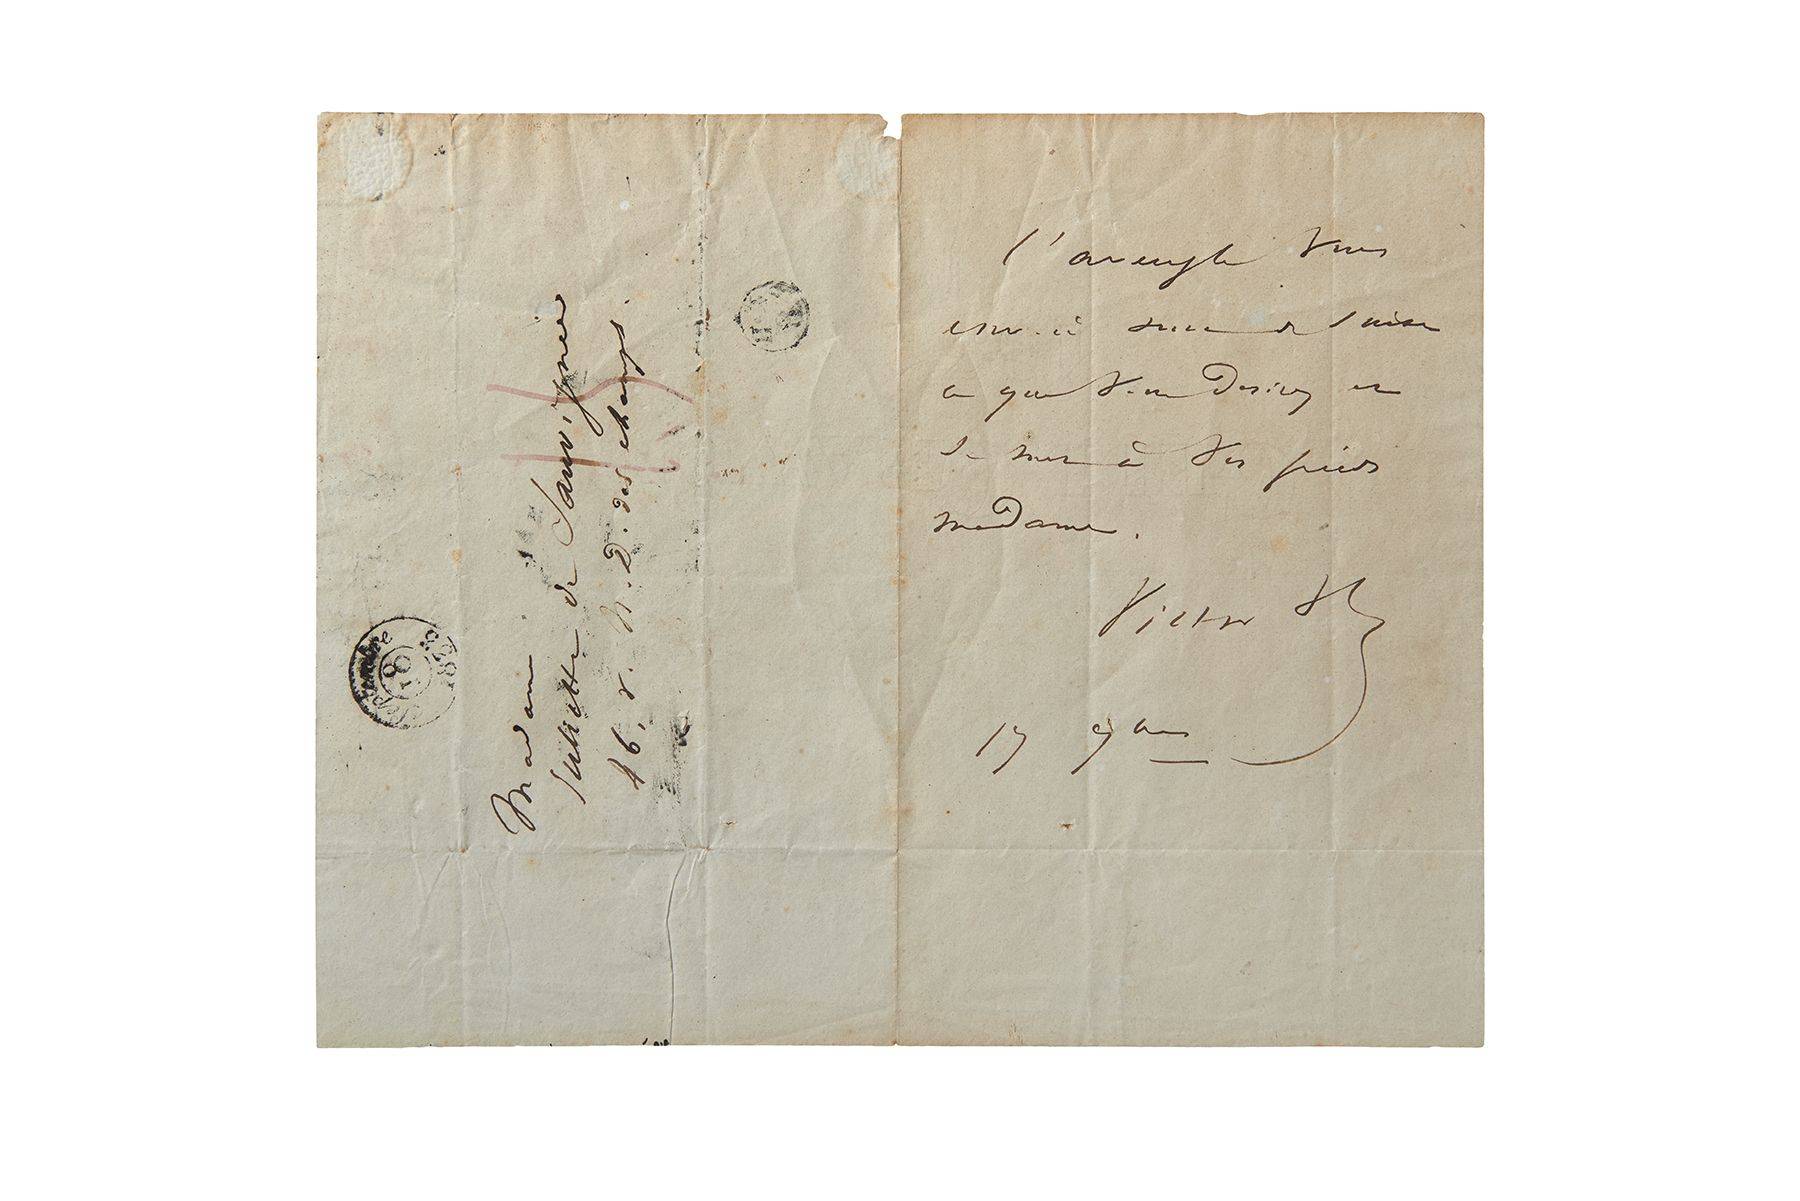 Madame
Juliette de Sauvignée
46, r. N. D. des champs.
18
l'aveugle vous
envoie
ce que vous desirez et
se met à vos pieds
madame.
Victor H
17 9bre